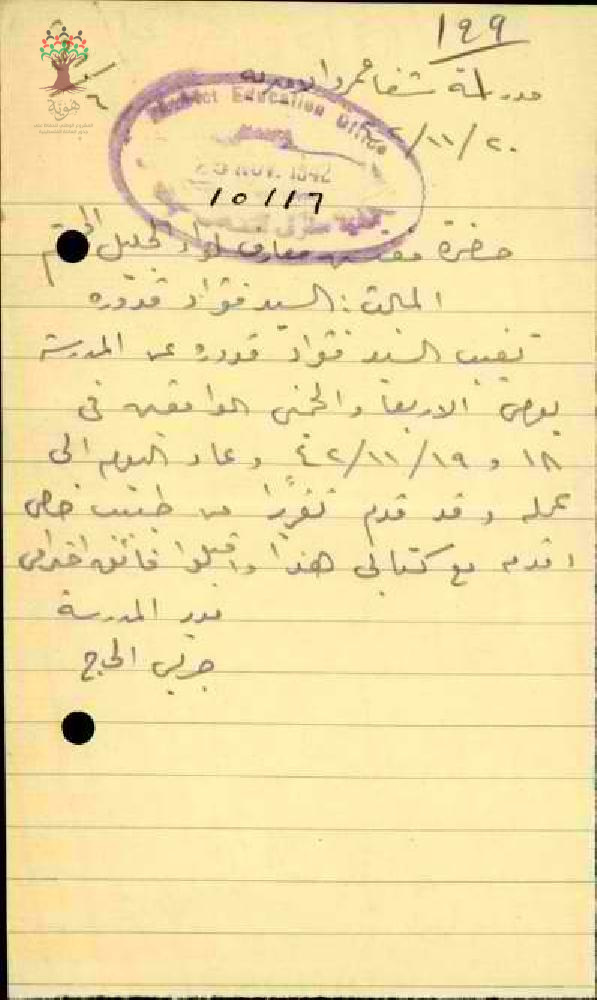 ١٩٩
مدرسة شفا عمرو الاميرية
٢٠/١١/٤٢
District Education Office
23 NOV. 1942
10/17
حضرة مفتش معارف لواء الجليل المحترم
الماده: السيد فؤاد قدوره
تغيب السيد فؤاد قدوره عن المدرسة
يومي الاربعا والخميس الموافقين في
١٨ و ١٩/١١/٤٢ وعاد اليوم الى
عمله وقد قدم تقريرا من طبيب خاص
اقدمه مع كتابي هذا واقبلوا فائق احترامي
مدير المدرسة
جريس الحاج
هوية